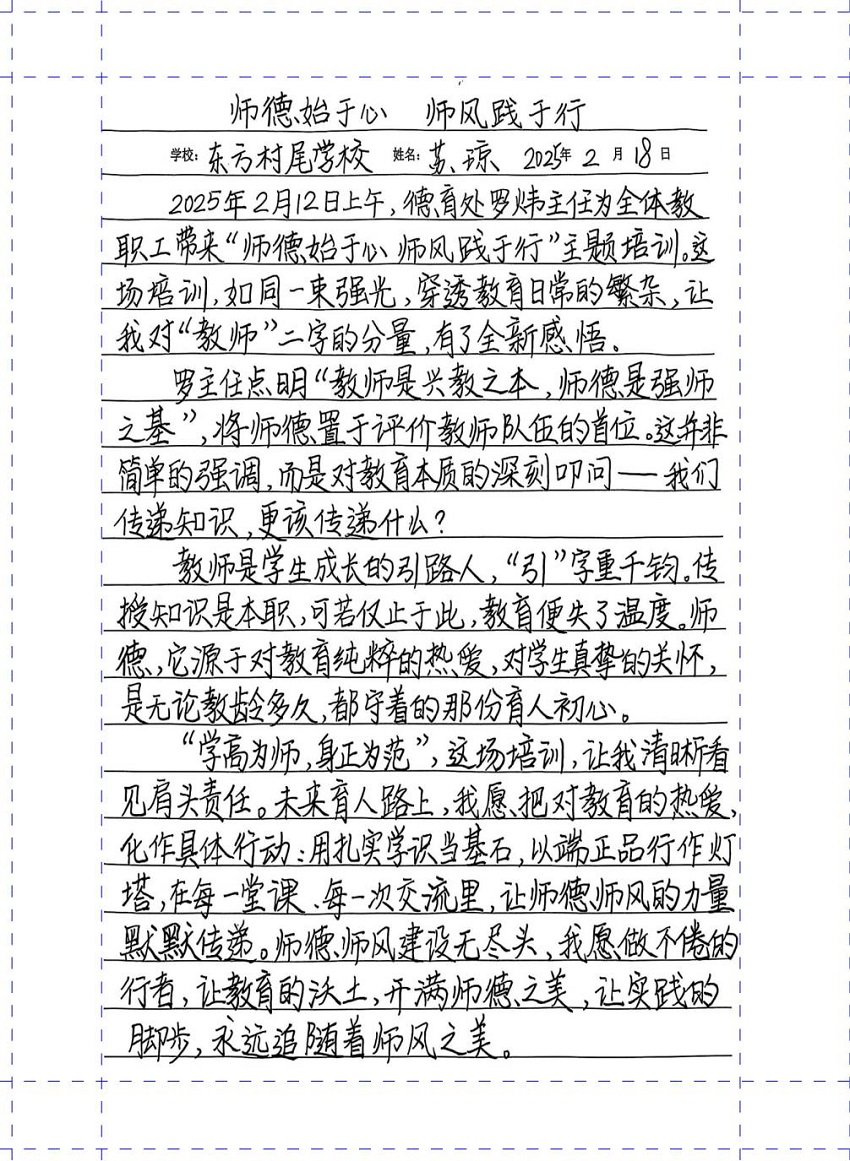 师德始于心 师风践于行
学校：东方村尾学校 姓名：苏琼 2025年2月18日
2025年2月12日上午，德育处罗炜主任为全体教
职工带来“师德始于心 师风践于行”主题培训。这
场培训，如同一束强光，穿透教育日常的繁杂，让
我对“教师”二字的分量，有了全新感悟。
罗主任点明“教师是兴教之本，师德是强师
之基”，将师德置于评价教师队伍的首位。这并非
简单的强调，而是对教育本质的深刻叩问——我们
传递知识，更该传递什么？
教师是学生成长的引路人，“引”字重千钧。传
授知识是本职，可若仅止于此，教育便失了温度。师
德，它源于对教育纯粹的热爱，对学生真挚的关怀，
是无论教龄多久，都守着的那份育人初心。
“学高为师，身正为范”，这场培训，让我清晰看
见肩头责任。未来育人路上，我愿把对教育的热爱，
化作具体行动：用扎实学识当基石，以端正品行作灯
塔，在每一堂课、每一次交流里，让师德师风的力量
默默传递。师德师风建设无尽头，我愿做不倦的
行者，让教育的沃土，开满师德之美，让实践的
脚步，永远追随着师风之美。